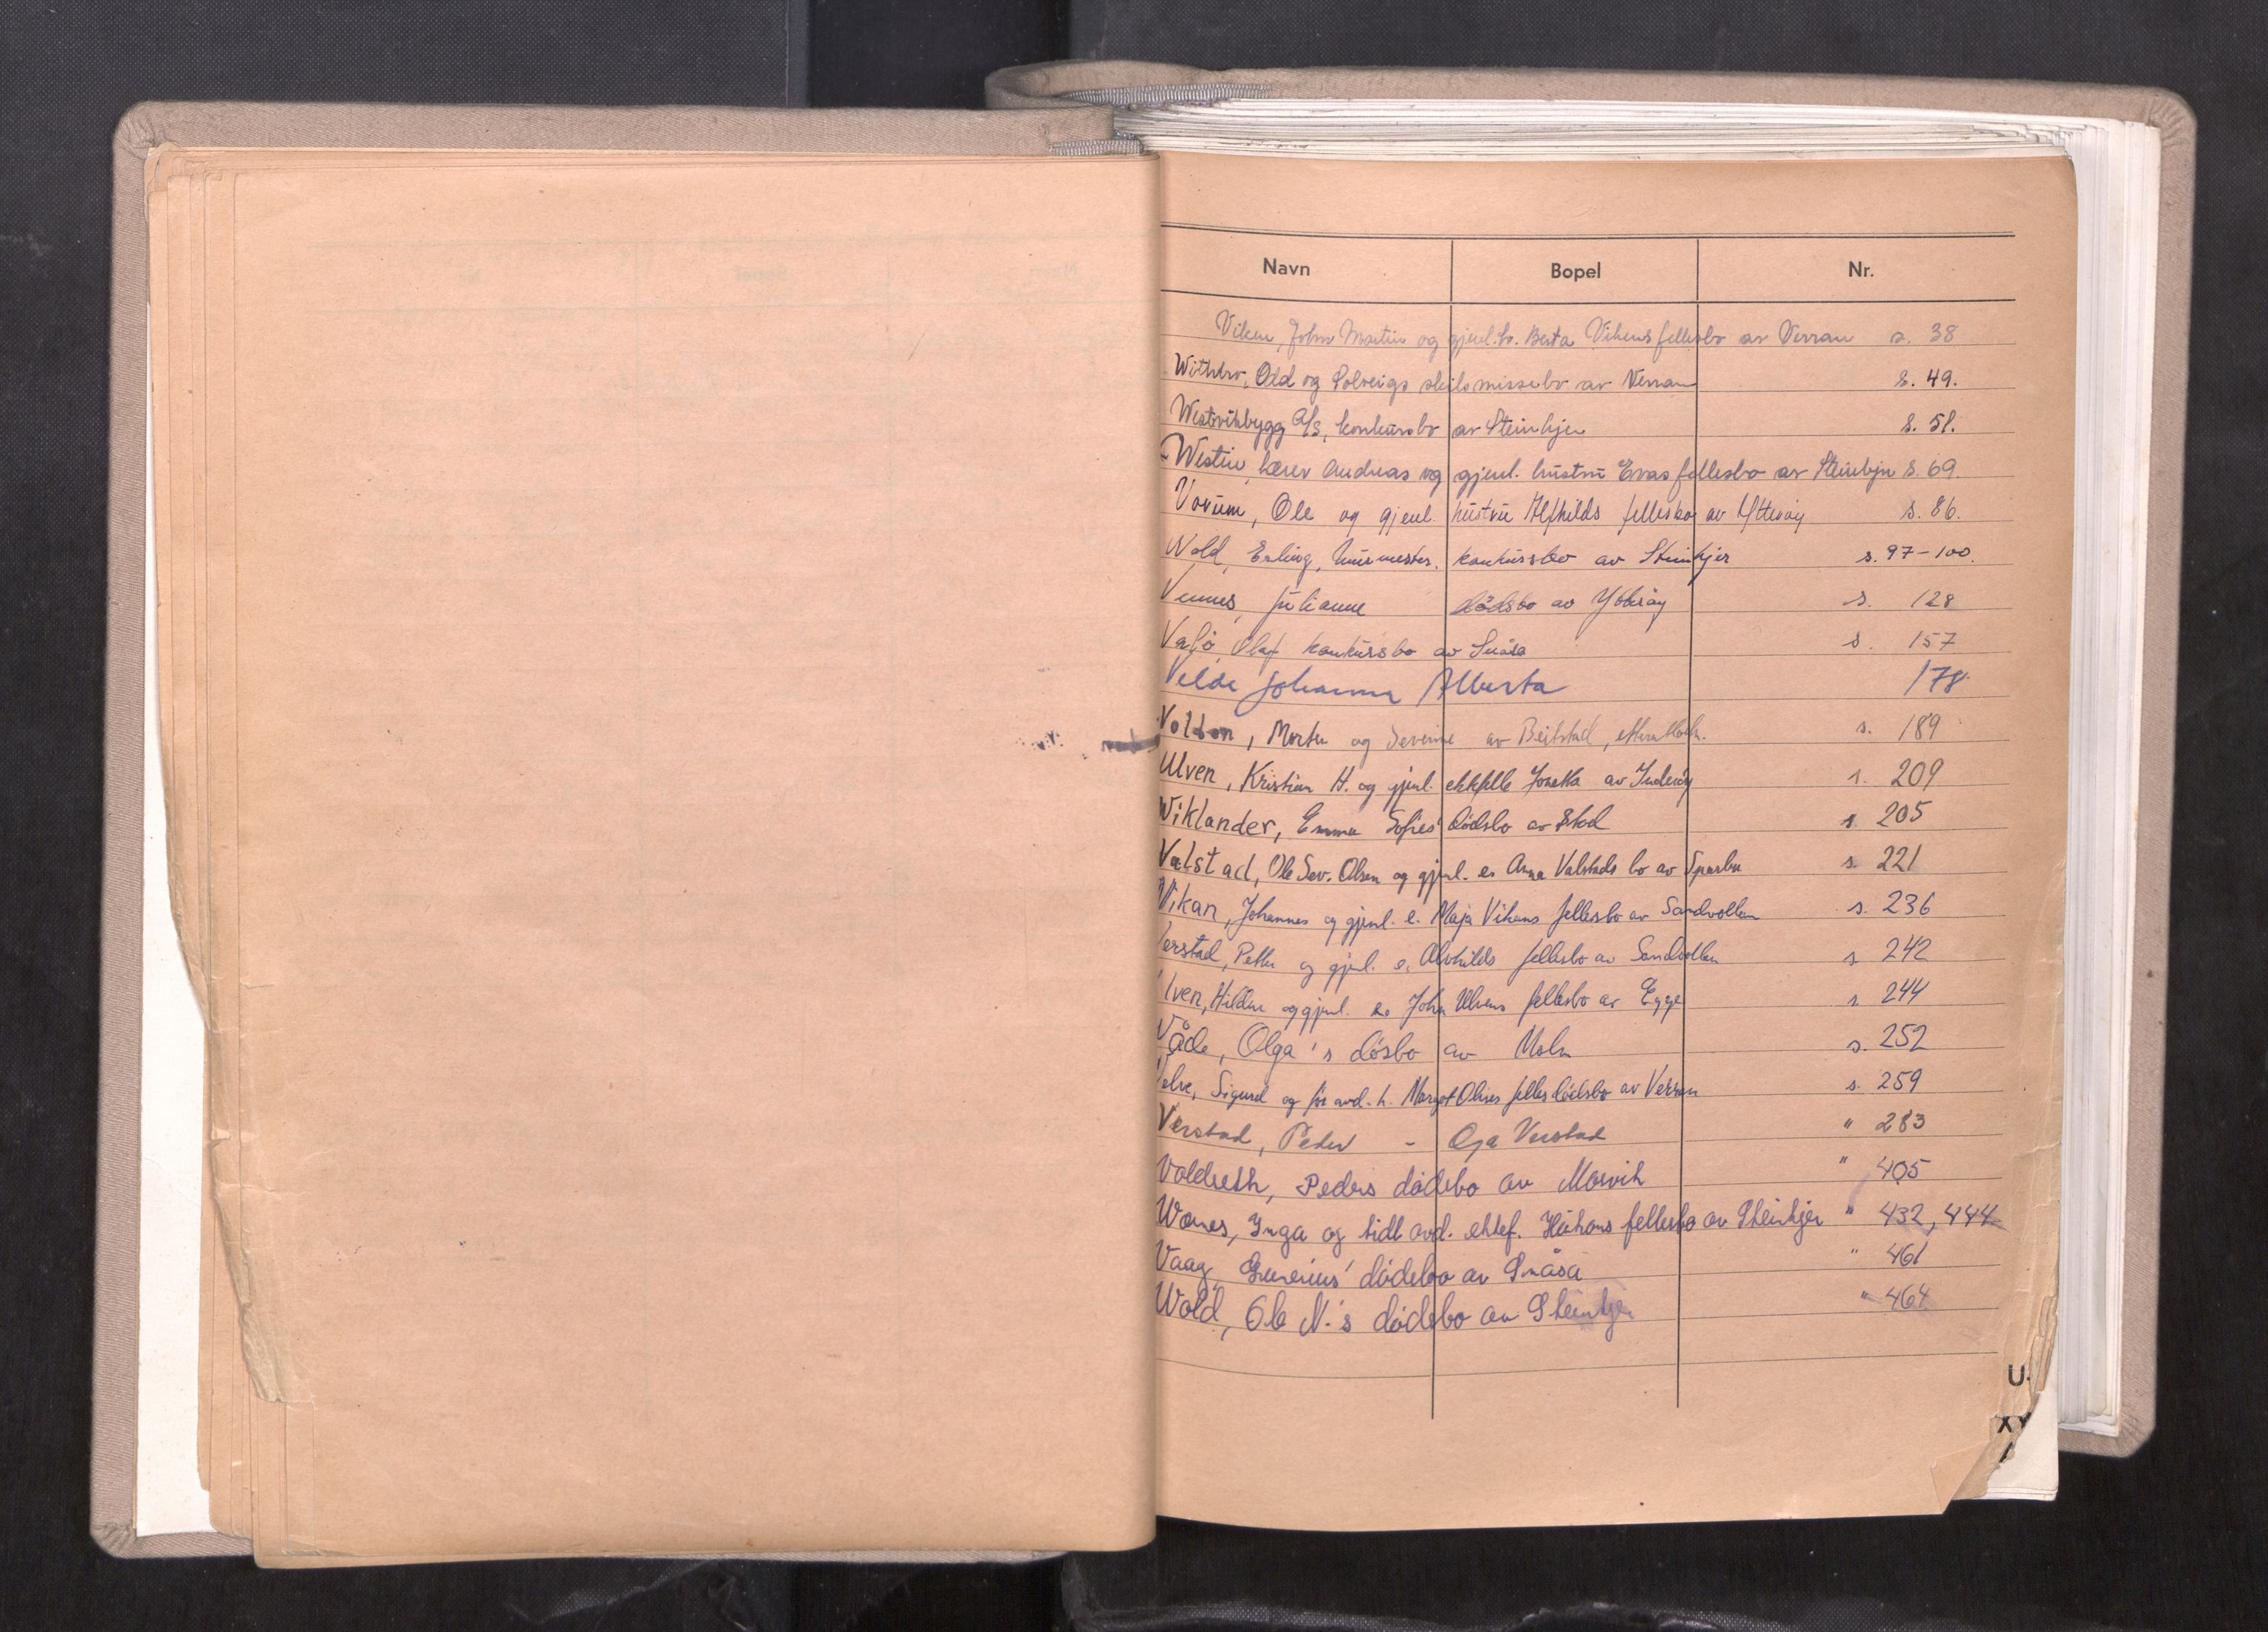 Navn Bopel Nr.
Viken, John Martin og gjenl. h. Berta Vikens fellesbo av Verran s. 38
Odd og Solveigs skilsmissebo av Verran s. 49.
Westvikbygg A/S, konkursbo av Steinkjer s. 58.
Westin, lærer Andreas og gjenl. hustru Evas fellesbo av Steinkjer s. 69.
Vorum, Ole og gjenl. hustru Alfhilds fellesbo av Ytterøy s. 86.
Wold, Erling, murmester, konkursbo av Steinkjer s. 97-100.
Vennes, Julianne dødsbo av Ytterøy s. 128
Olaf konkursbo av Snåsa s. 157
Velde Johanna Alberta 178
Morten og Severine av Beitstad, s. 189
Ulven, Kristian H. og gjenl. ektefelle Josefa av Inderøy s. 209
Wiklander, Emma Sofies' dødsbo av Stod s. 205
Valstad, Ole Sev. Olsen og gjenl. e. Anna Valstads bo av Sparbu s. 221
Vikan, Johannes og gjenl. e. Maja Vikans fellesbo av Sandvollan s. 236
Verstad, Petter og gjenl. e. Alvhilds fellesbo av Sandvollan s. 242
Ulven, Hildur og gjenl. e. John Ulvens fellesbo av Egge s. 244
Våde, Olga's døsbo av Malm s. 252
Sigurd og før avd. h. Margot Olines felles dødsbo av Verran s. 259
Verstad, Peder - Oja Verstad " 283
Valdreth, Peders dødsbo av Morvik " 405
Wanes, Inga og tidl avd. ektef. Håkons fellesbo av Steinkjer " 432, 444
Vaag, Grunerius' dødsbo av Snåsa " 461
Wold, Ole N.'s dødsbo av Steinkjer " 464
U-
XY